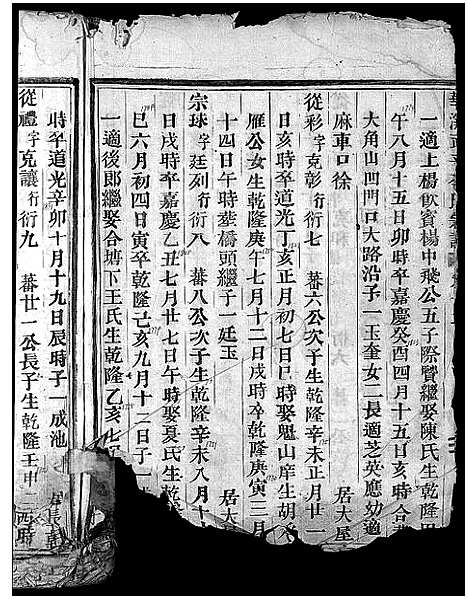 一適上楊飲賓揚中飛公五子際贒繼娶陳氏生乾隆
午八月十五日卯時卒嘉慶癸酉四月十五日亥時合
大角山凹門口大路沿子一玉奎女二長適芝英應幼適
麻車口徐
從彩字克彰行衍七 蕃六公次子生乾隆辛未正月廿一
日亥時卒道光丁亥正月初七日巳時娶魁山庠生胡
雁公女生乾隆庚午七月十二日戌時卒乾隆庚寅三月
十四日午時葬橋頭繼子一廷玉 居大屋
宗球字廷列行衍八 蕃八公次子生乾隆辛未八月十
日戌時卒嘉慶乙丑七月廿七日午時娶夏氏生乾
巳六月初四日寅卒乾隆己亥九月十二日子一
一適後郎繼娶合塘下王氏生乾隆乙亥七
時卒道光辛卯十月十九日辰時子一成池
從禮字克讓行衍九 蕃廿一公長子生乾隆壬申 酉時